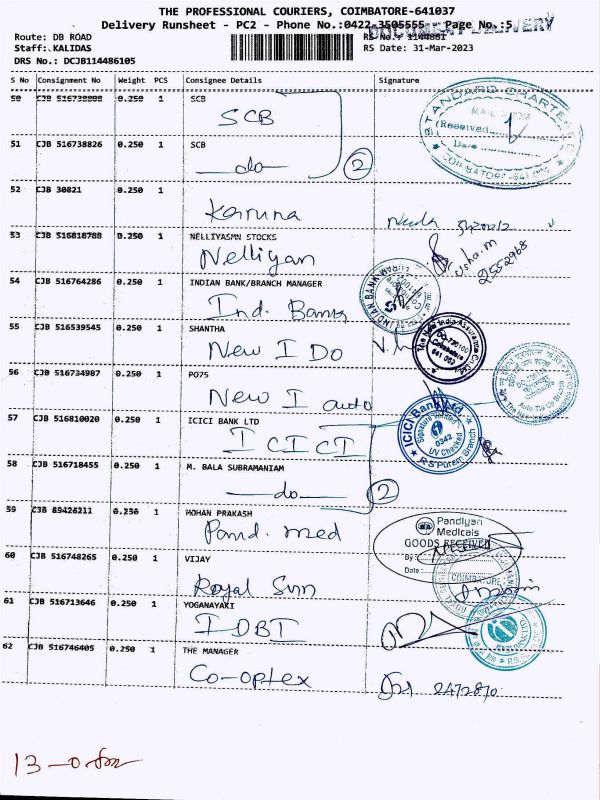 THE PROFESSIONAL COURIERS, COIMBATORE-641037
Delivery Runsheet - PC2 - Phone No.:0422-3505555 Page No.:5
DOCUMENT DELIVERY
Route: DB ROAD
RS No.: 1144861
Staff: KALIDAS
RS Date: 31-Mar-2023
DRS No.: DCJB114486105
S No Consignment No Weight PCS Consignee Details Signature
50 CJB 516738888 0.250 1 SCB
SCB
STANDARD CHARTERED
MAIL ROOM
(Received
Date
COIMBATORE-641
51 CJB 516738826 0.250 1 SCB
do 2
52 CJB 30821 0.250 1
Karuna
53 CJB 516818788 0.250 1 NELLIYASMN STOCKS
Nelliyan
Usha.m
2552968
54 CJB 516764286 0.250 1 INDIAN BANK/BRANCH MANAGER
Ind. Bank
INDIAN BANK
55 CJB 516539545 0.250 1 SHANTHA
New I DO
The New India Assurance Co. Ltd.
Coimbatore
56 CJB 516734987 0.250 1 PO75
New I auto
57 CJB 516810020 0.250 1 ICICI BANK LTD
ICICI
ICICI Bank Ltd
Signature Verified
0342
UV Checked
RS Puram Branch
58 CJB 516718455 0.250 1 M. BALA SUBRAMANIAM
do 2
59 CJB 89426211 0.230 1 MOHAN PRAKASH
Pand. med
Pandiyan
Medicals
GOODS RECEIVED
By
Date
60 CJB 516748265 0.250 1 VIJAY
Royal Sun
COIMBATORE
61 CJB 516713646 0.250 1 YOGANAYAKI
IDBI
62 CJB 516746405 0.250 1 THE MANAGER
Co-optex
2472870
13